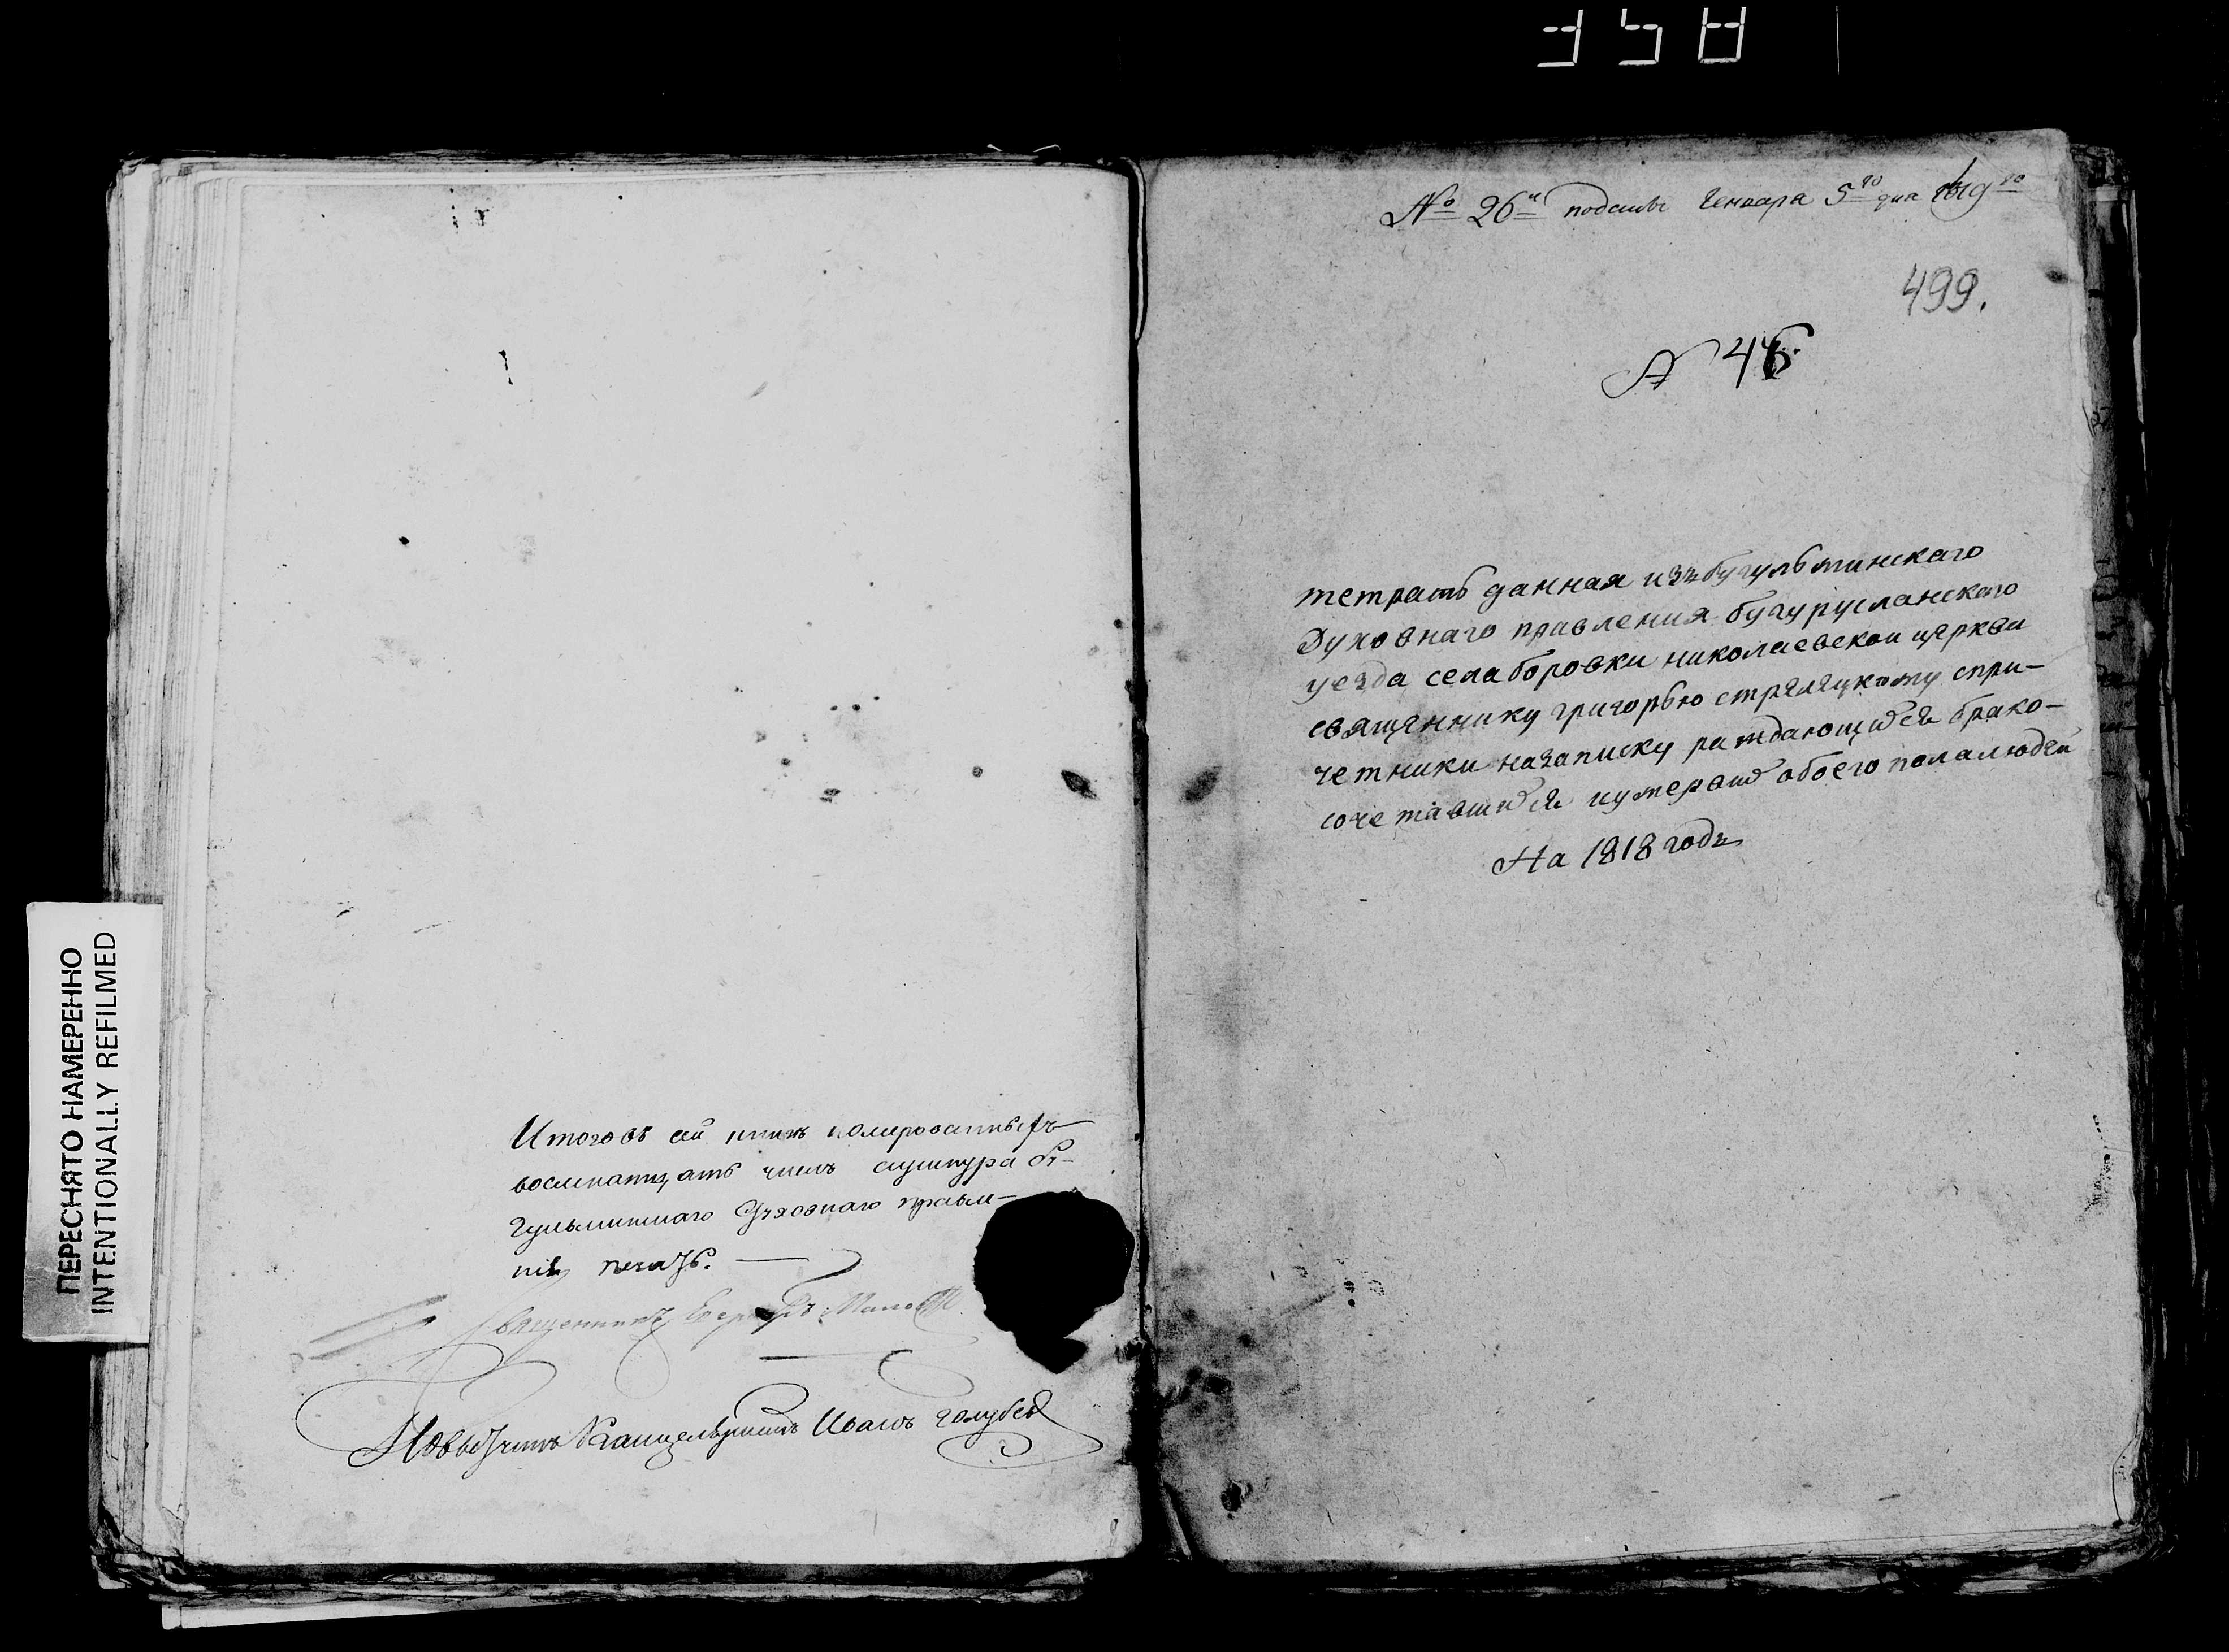 358
ПЕРЕСНЯТО НАМЕРЕННО
INTENTIONALLY REFILMED
Итого въ сей номерованныхъ
восемнатцать
гульминскаго Духовнаго правле-
нія печать.
Священникъ
Повытчикъ Канцеляристъ Иванъ Голубев
№ 26й Генваря 5го дня 1819го
499.
№ 46
тетрать данная изъ бугульминскаго
Духовнаго правления бугурусланского
уезда села боровки николаевскои церкви
священнику григорью стрелецкому спри-
четники назаписку раждающихся брако-
сочетавшихся иумерших обоего полалюдей
На 1818 годъ